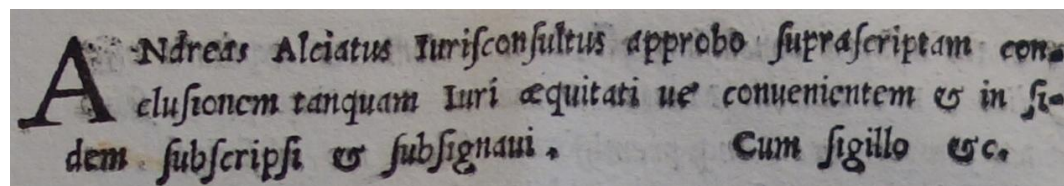 ANdreas Alciatus Iuriſconſultus approbo ſupraſcriptam con-
cluſionem tanquam Iuri æquitati ue conuenientem & in fi-
dem ſubſcripſi & ſubſignaui. Cum ſigillo &c.